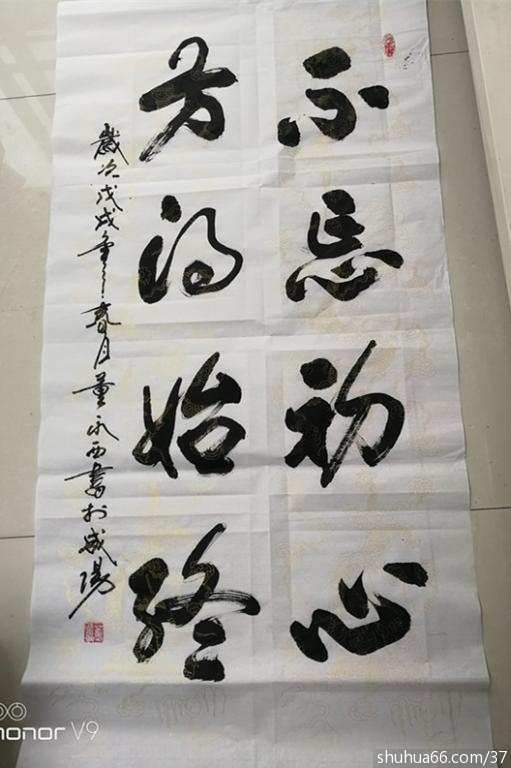 不忘初心
方得始终
歲次戊戌年春月董永西書於咸陽
honor V9
shuhua66.com/37